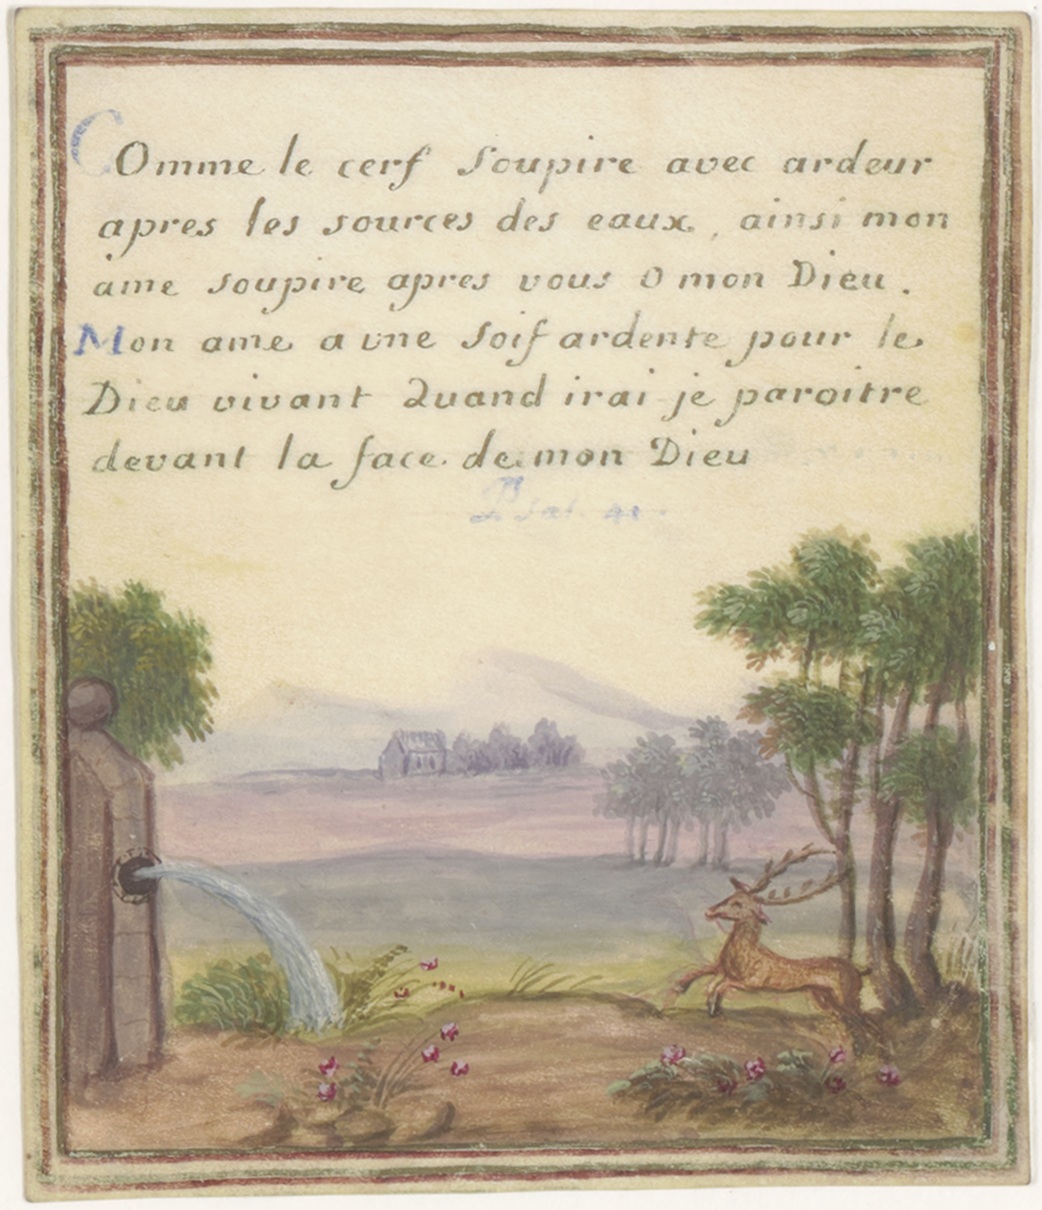 COmme le cerf soupire avec ardeur
apres les sources des eaux, ainsi mon
ame soupire apres vous O mon Dieu.
Mon ame a une soif ardente pour le
Dieu vivant Quand irai-je paroitre
devant la face de mon Dieu
Psal. 41.